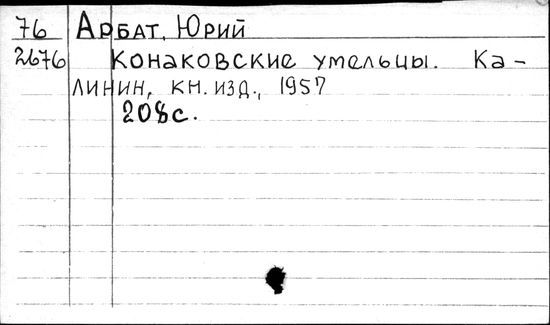 76 Арбат, Юрий
2676 Конаковские умельцы. Ка-
линин, кн. изд., 1957
208 с.